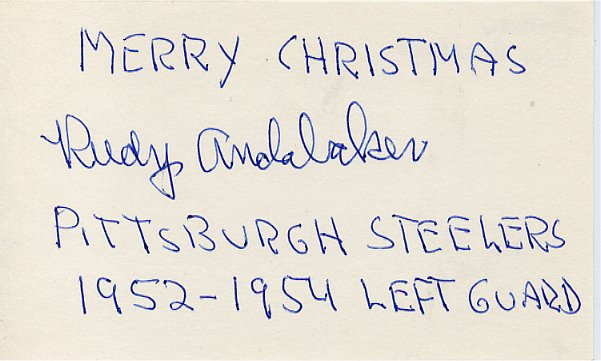 MERRY CHRISTMAS
Rudy Andabaker
PITTSBURGH STEELERS
1952-1954 LEFT GUARD